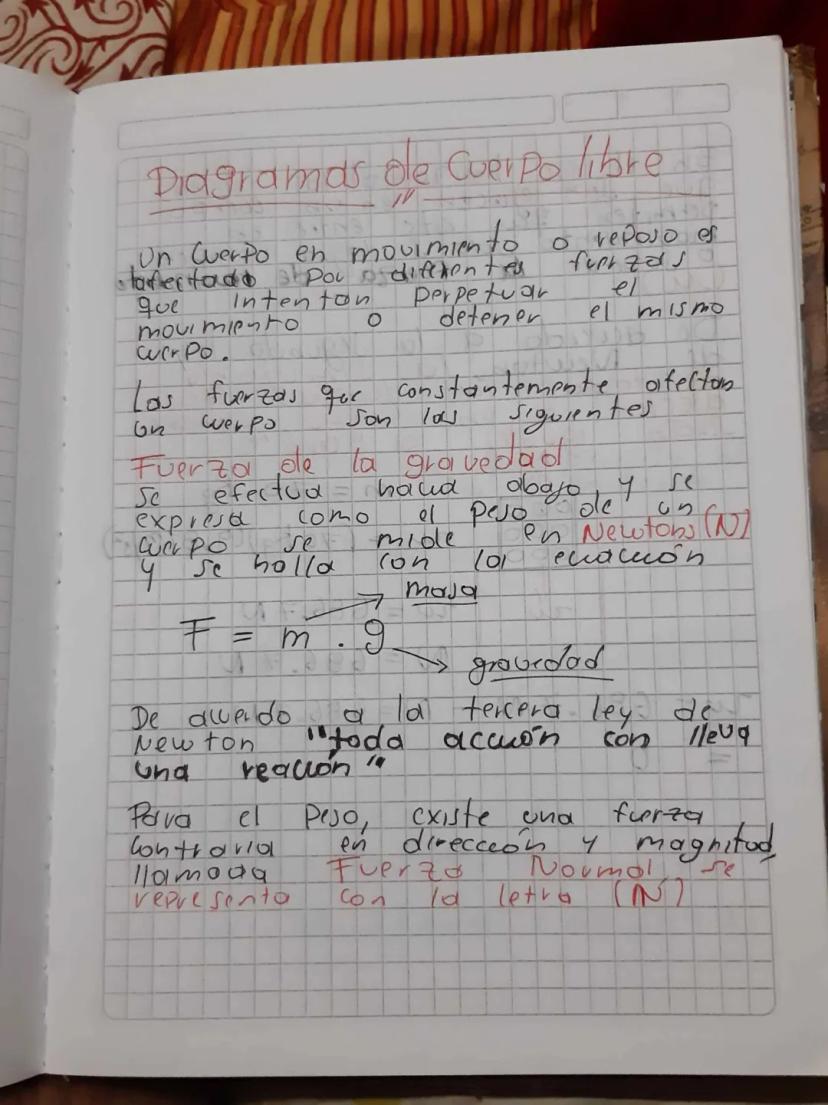 Diagramas de Cuerpo libre
Un Cuerpo en movimiento o reposo es
afectado por diferentes fuerzas
que intentan perpetuar el
movimiento o detener el mismo
cuerpo.
Las fuerzas que constantemente afectan
un cuerpo son las siguientes
Fuerza de la gravedad
Se efectua hacia abajo y se
expresa como el peso de un
cuerpo se mide en Newtons (N)
y se halla con la ecuación
masa
F = m . g
gravedad
De acuerdo a la tercera ley de
Newton "toda acción con lleva
una reacción"
Para el peso, existe una fuerza
contraria en dirección y magnitud
llamada Fuerza Normal, se
representa con la letra (N)